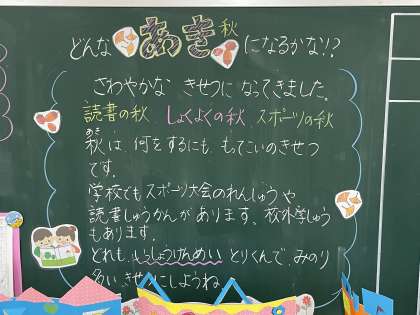 どんな あき 秋 になるかな!?
さわやかな きせつに なってきました。
読書の秋 しょくよくの秋 スポーツの秋
秋(あき)は 何をするにも、もってこいのきせつ
です。
学校でもスポーツ大会のれんしゅうや
読書しゅうかんがあります。校外学しゅう
もあります。
どれも、いっしょうけんめい とりくんで、みのり
多いきせつにしようね